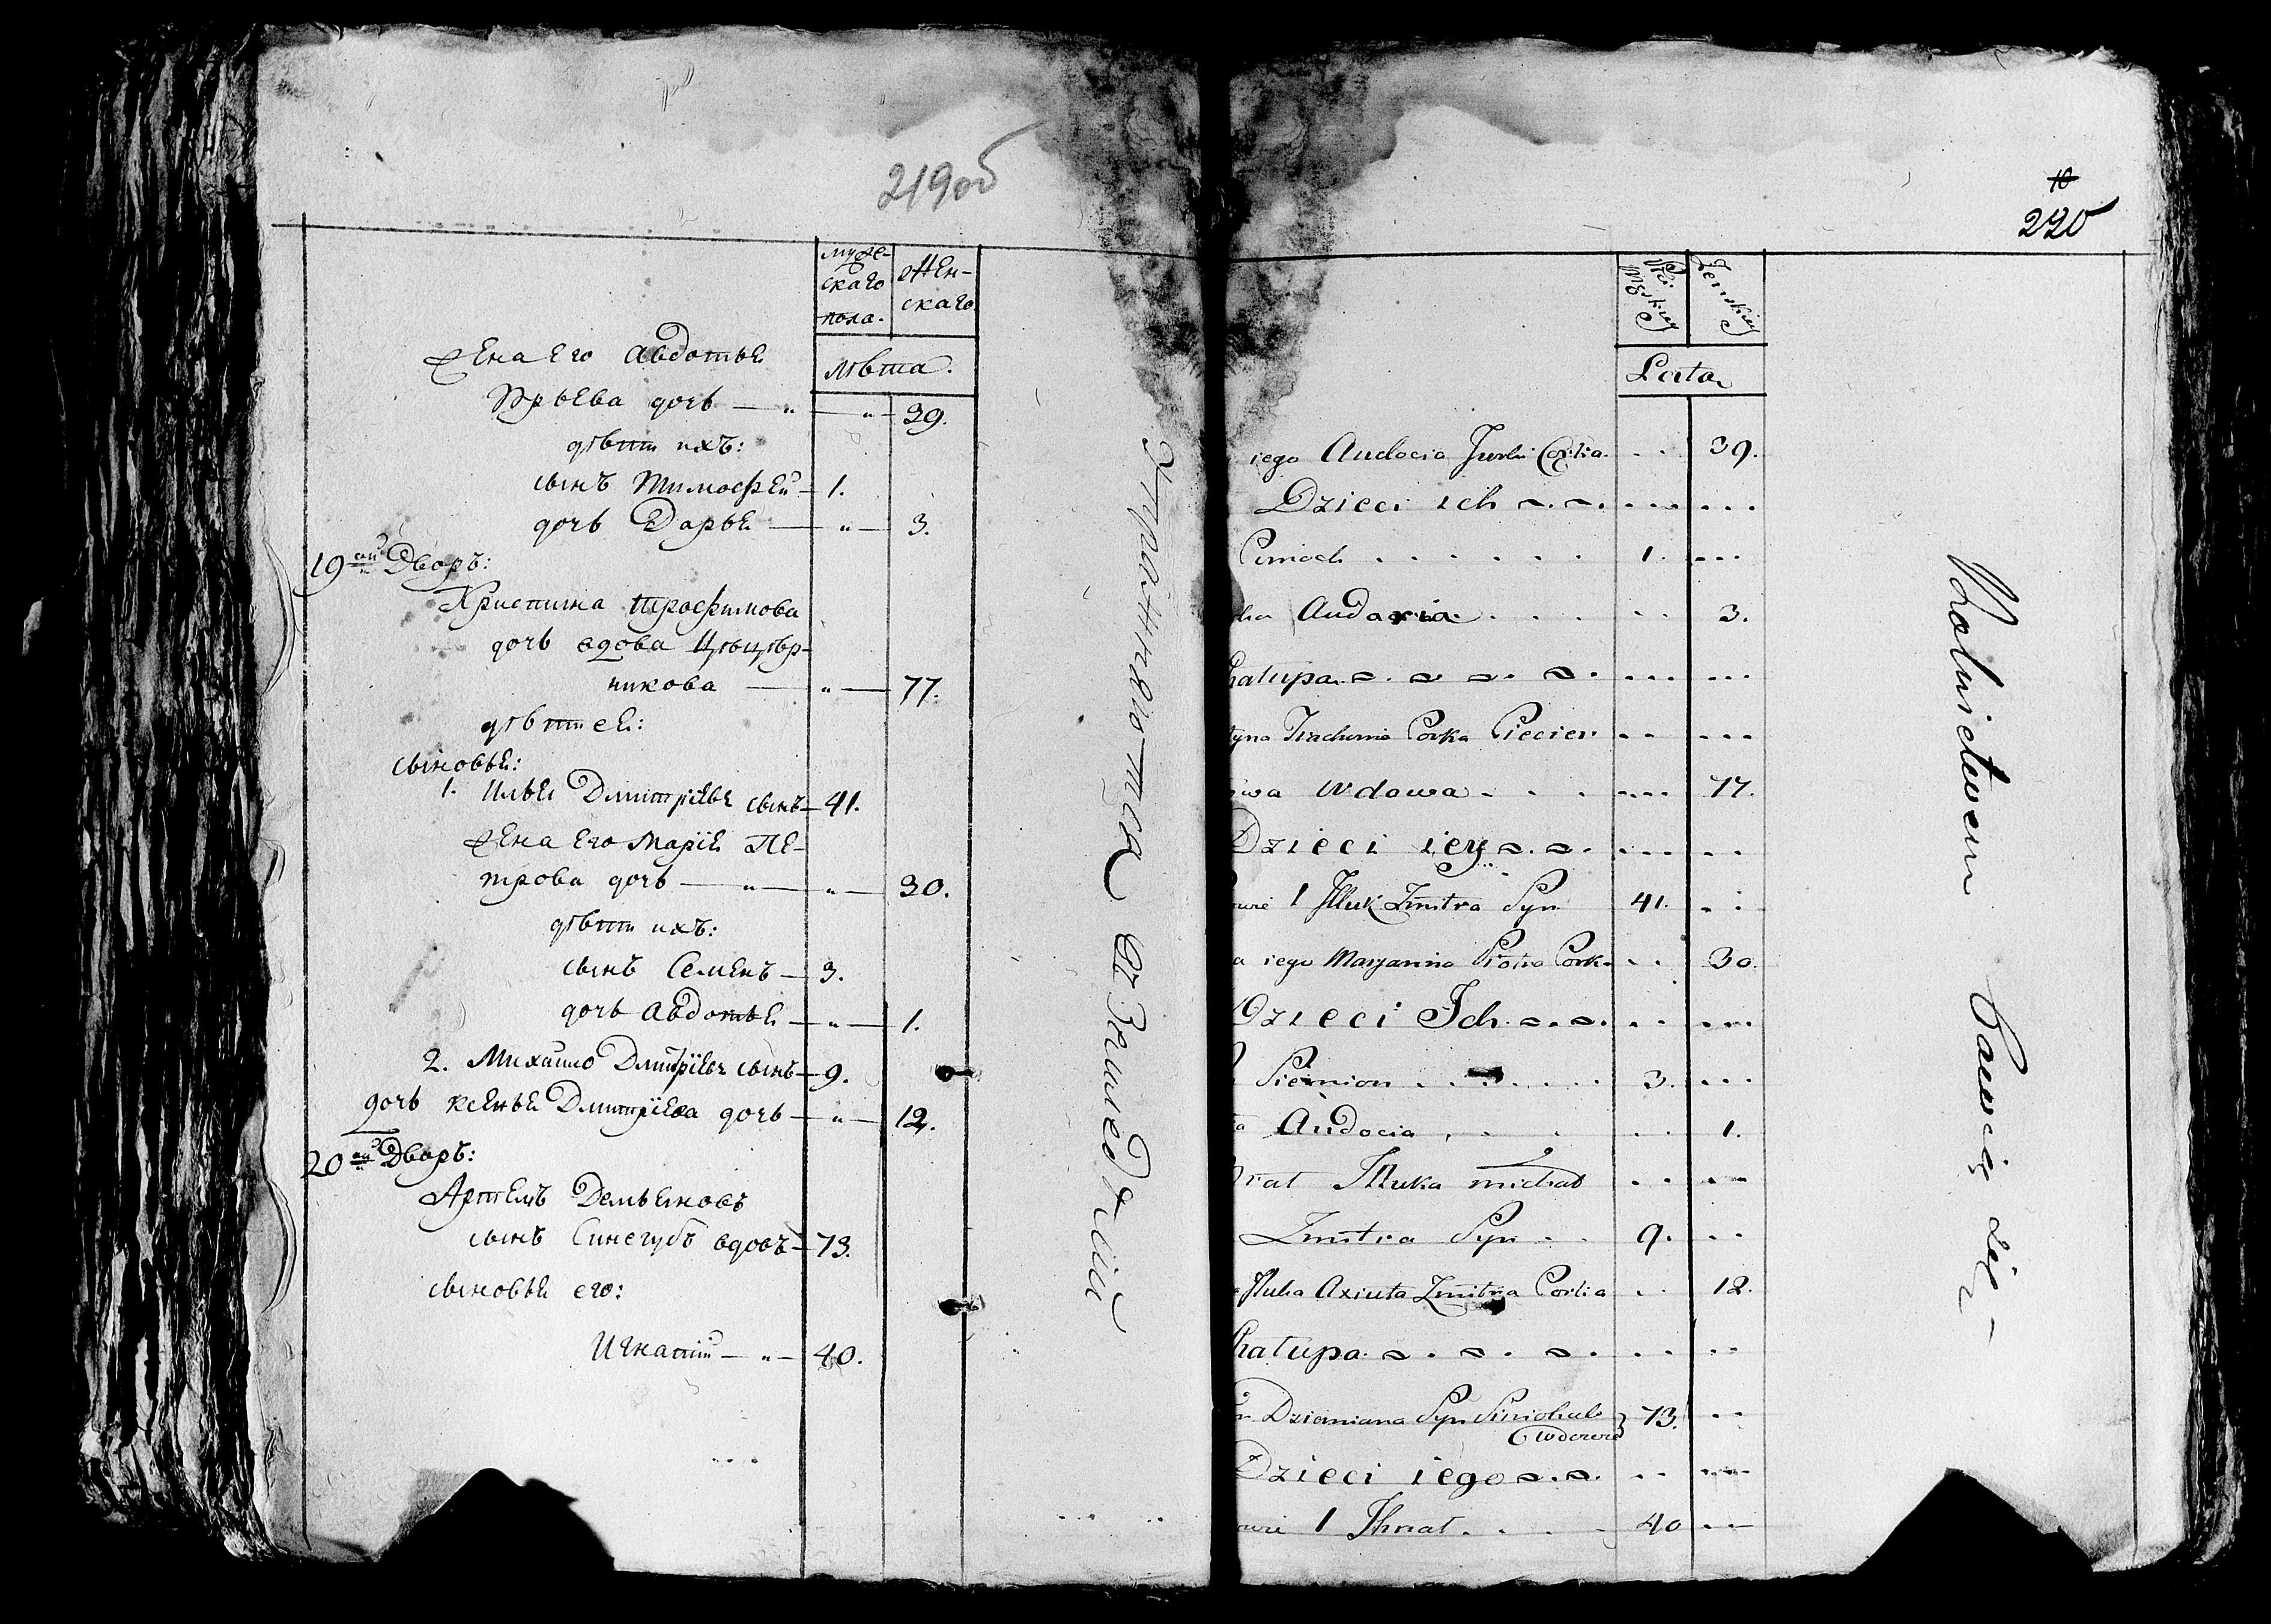 219об
муже-
скаго
пола.
жен-
скаго
лѣта.
жена его Авдотья
Юрьева дочь — " — " — 39.
дѣти ихъ:
сынъ Тимофей — 1.
дочь Дарья — " — 3.
19й Дворъ:
Христина Трофимова
дочь вдова Цецер-
никова — " — 77.
дѣти ея:
сыновья:
1. Илья Дмитріевъ сынъ — 41.
жена его Марія Пе-
трова дочь — " — " — 30.
дѣти ихъ:
сынъ Семенъ — 3.
дочь Авдотья — " — 1.
2. Михайло Дмитріевъ сынъ — 9.
дочь Ксенья Дмитріева дочь — " — 12.
20й Дворъ:
Артемъ Демьяновъ
сынъ Синегубъ вдовъ — 73.
сыновья его:
Игнатій — " — 40.
Упражняются въ Земледѣліи
10
220
Płci
Męskiey
Żenskiey
Lata
iego Audocia Jurki Corka . . 39.
Dzieci ich
Cimoch . . . . . . 1.
Audaria . . . 3.
hałupa
tyna Trachima Corka Ciecier
owa Wdowa . . . 77.
Dzieci iey
owie 1 Illuk Zmitra Syn 41.
a iego Maryanna Piotra Cork. 30.
Dzieci Ich
Siemion . . . 3.
Audocia . . . 1.
rat Illuka michał
Zmitra Syn . . 9.
Illuka Axiuta Zmitra Corka . . 12.
hałupa
Dziemiana Syn Siniohub 73.
Wdowiec
Dzieci iego
owie 1 Ihnat . . . . 40
Rolnictwem bawią się —